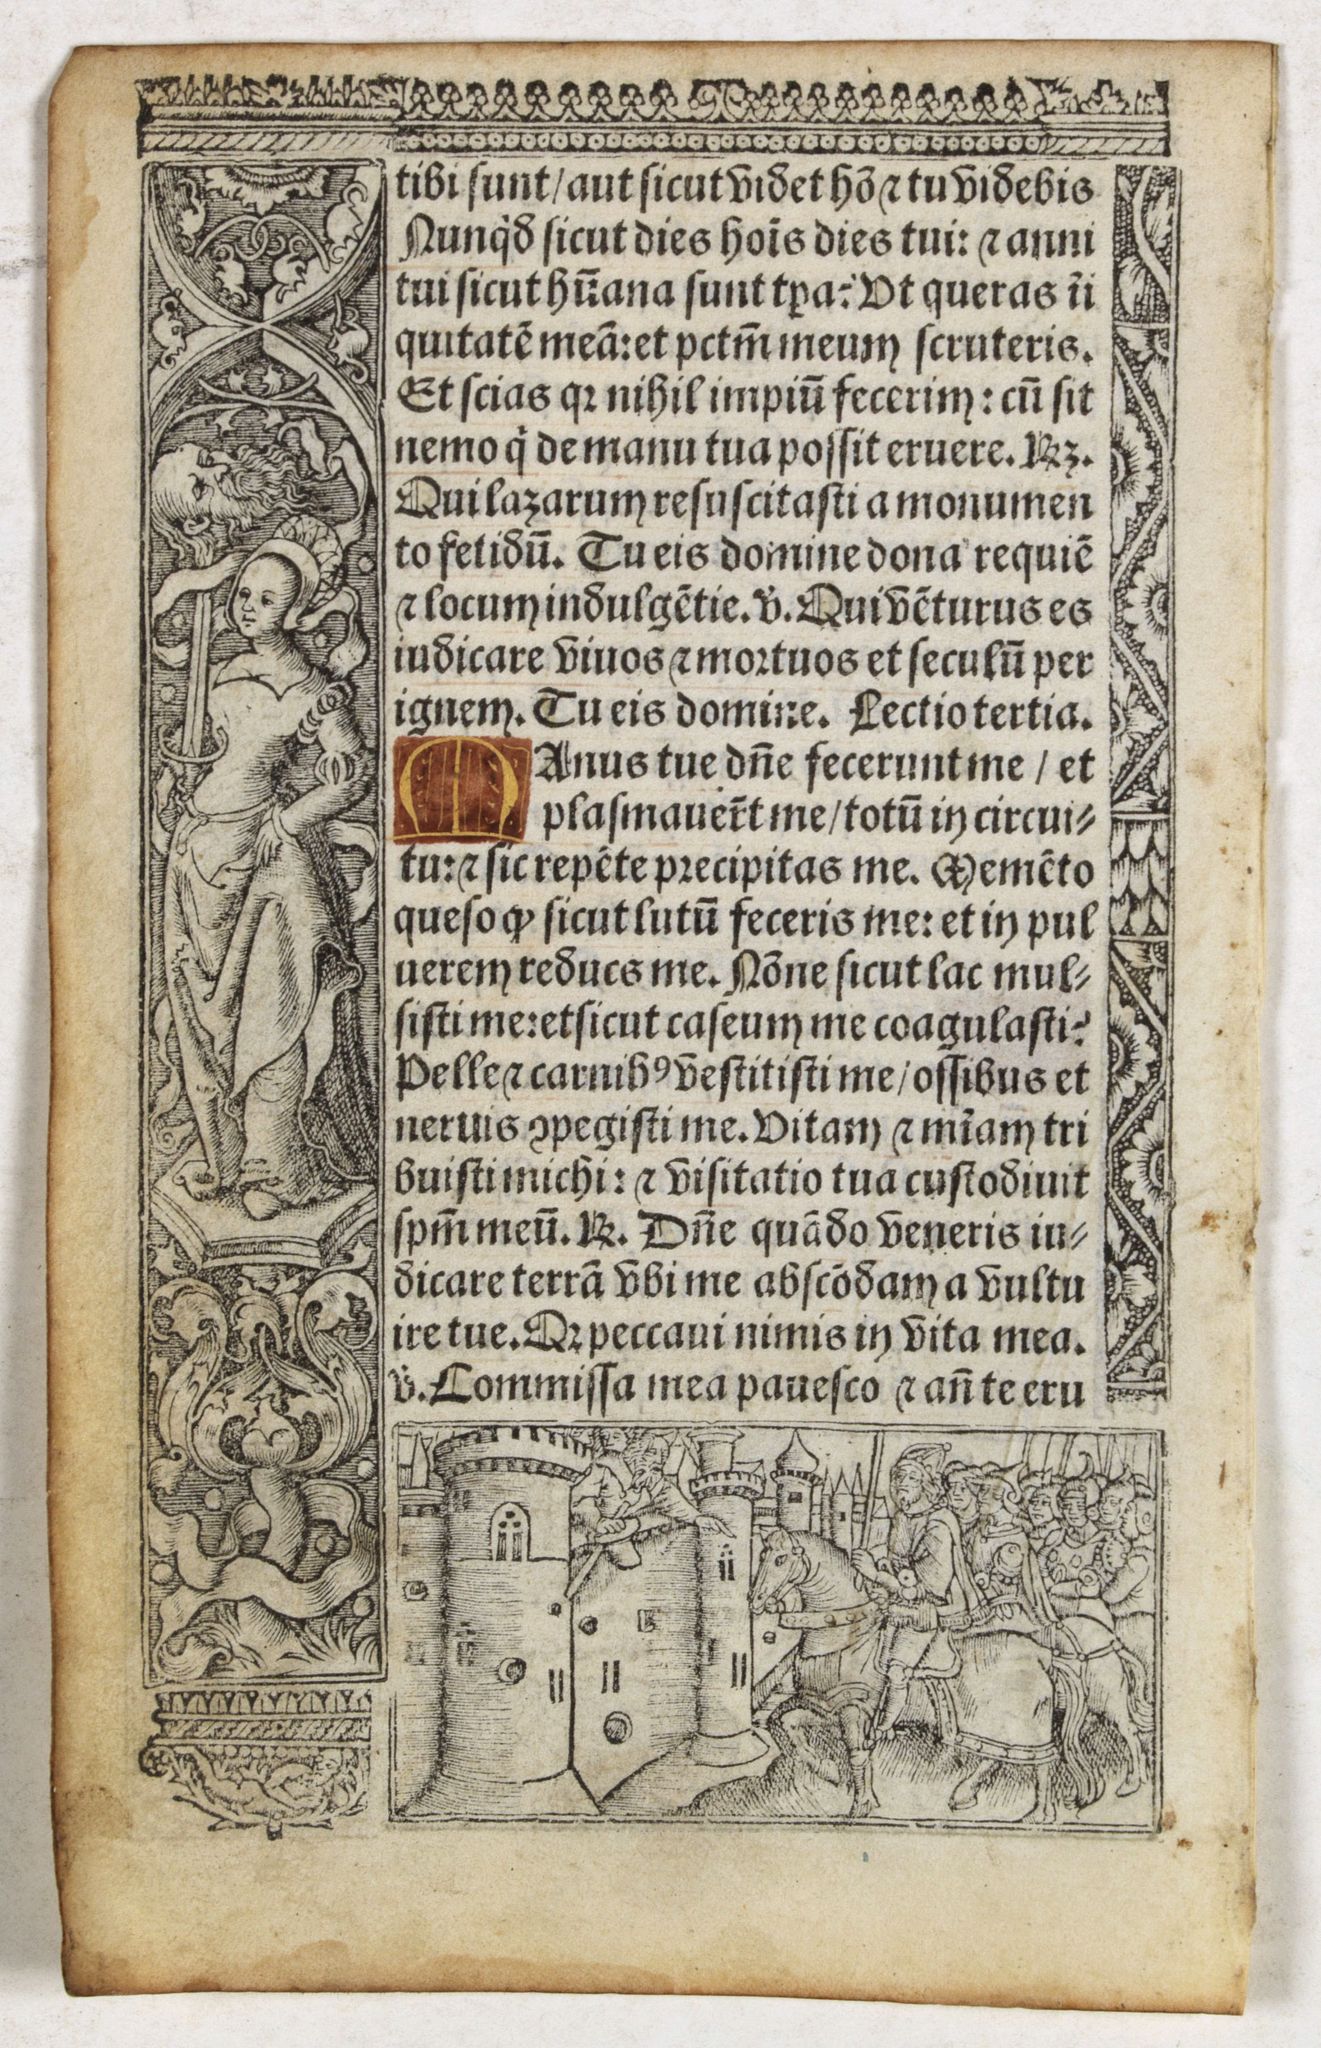 tibi sunt/aut sicut videt hō ⁊ tu videbis
Nunq̇d sicut dies hoīs dies tui: ⁊ anni
tui sicut hūana sunt tꝑa? Vt queras īi
quitatē meā: et pctm̄ meum scruteris.
Et scias qꝛ nihil impiū fecerim: cū sit
nemo q̇ de manu tua possit eruere. ℞ꝫ.
Qui lazarum resuscitasti a monumen
to fetidū. Tu eis domine dona requiē
⁊ locum indulgētie. v̄. Qui vēturus es
iudicare viuos ⁊ mortuos et seculū per
ignem. Tu eis domine. Lectio tertia.
MAnus tue dn̄e fecerunt me / et
plasmauer̄t me/totū in circui⸗
tu: ⁊ sic repēte precipitas me. Memēto
queso ꝙ sicut lutū feceris me: et in pul
uerem reduces me. Nōne sicut lac mul⸗
sisti me: et sicut caseum me coagulasti?
Pelle ⁊ carnibꝰ vestitisti me/ossibus et
neruis ꝯpegisti me. Vitam ⁊ mīam tri
buisti michi: ⁊ visitatio tua custodiuit
spm̄ meū. ℞. Dn̄e quādo veneris iu⸗
dicare terrā vbi me abscōdam a vultu
ire tue. Qꝛ peccaui nimis in vita mea.
v̄. Commissa mea pauesco ⁊ an̄ te eru